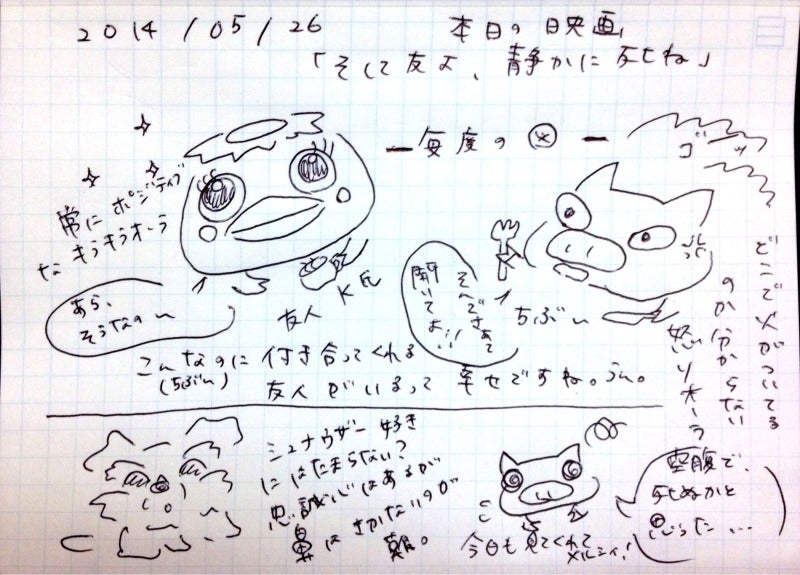 2014/05/26
本日の映画
「そして友よ、静かに死ね」
ー毎度の図ー
ゴーッ
常にポジティブ
な キラキラオーラ
あら、
そうなの〜
友人 K氏
そんでさぁて
聞いてよ!!
ちぶ〜
どこで火がついてる
のか分からない
怒りオーラ
こんなのに付き合ってくれる
(ちぶ〜)
友人がいるって 幸せですね。うん。
シュナウザー好き
にはたまらない?
忠誠心はあるが
鼻はきかないのが
難。
今日も見てくれて
メルシィ!
空腹で、
死ぬかと
思った…